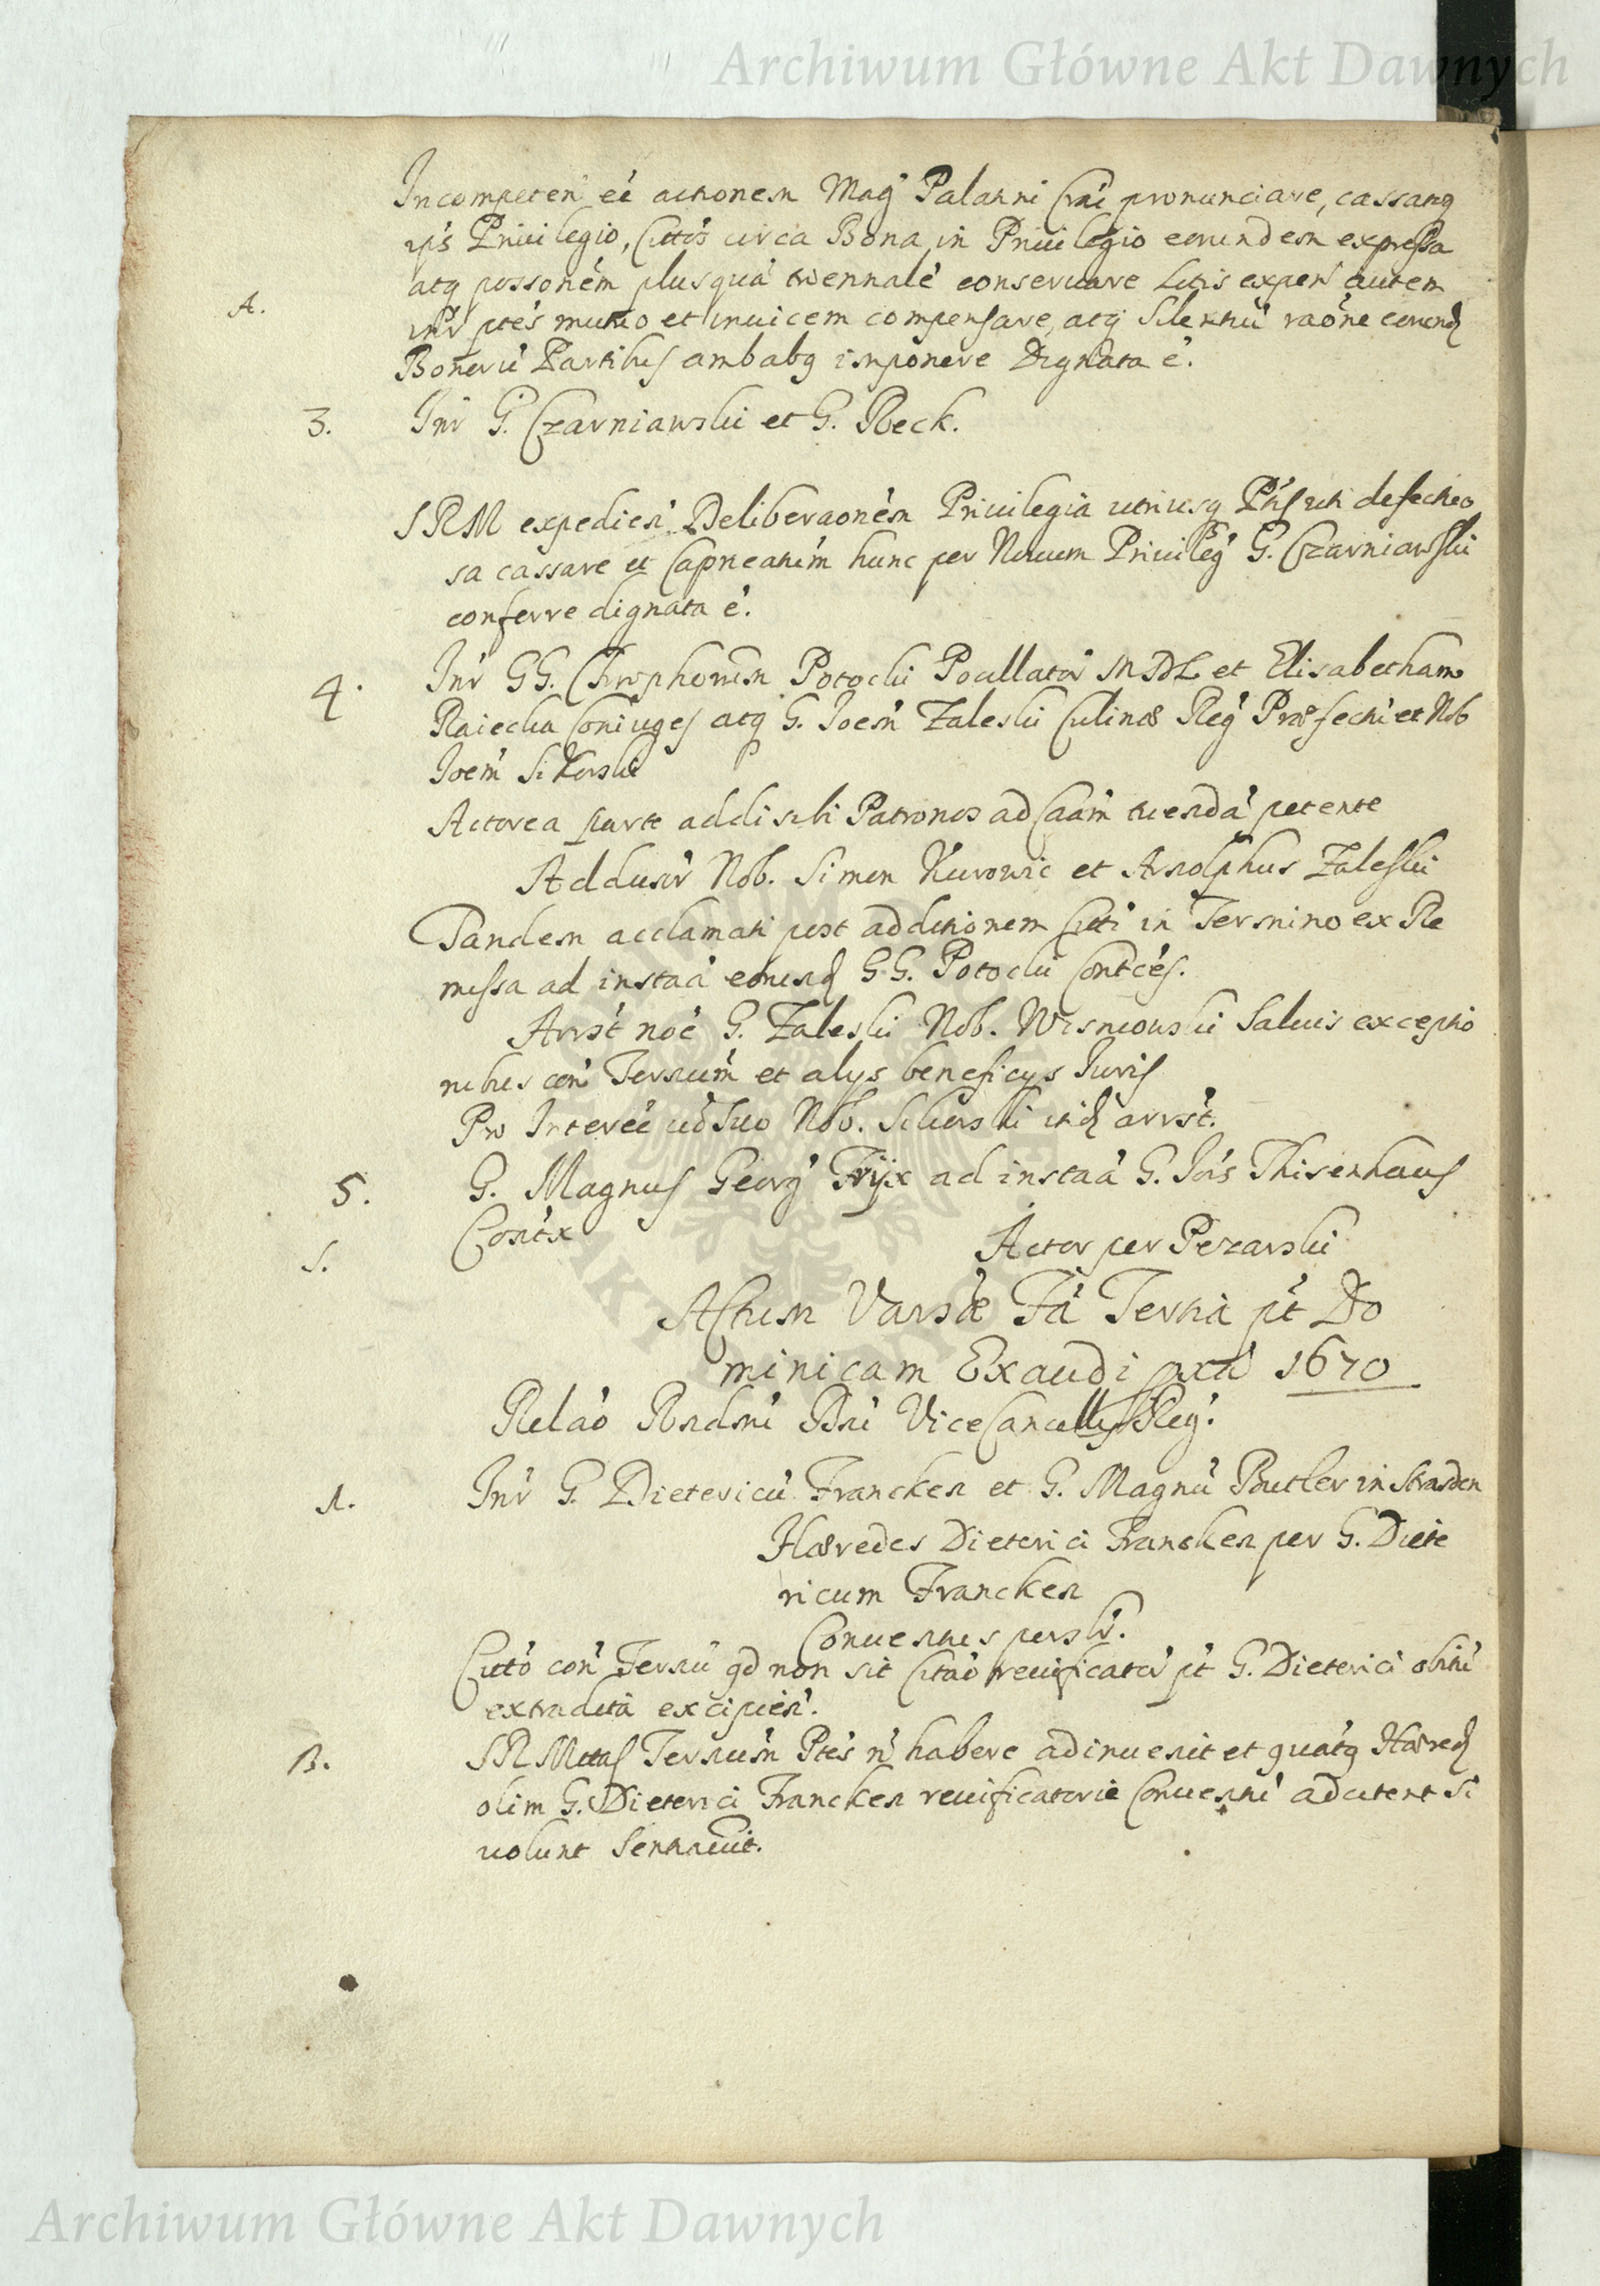 Archiwum Główne Akt Dawnych
Incompeten ẽẽ actionem Mag Palatini Cni pronunciare, cassatq
ips Privilegio, Cittos circa Bona in Privilegio eorundem expressa
A. atq possonem plusquā triennalē conservare Litis expen autem
intr ptes mutuo et invicem compensare, atq Silentiū raone eorund
Bonorū Partibus ambabq imponere Dignata ē.
3. Intr G. Czarniawski et G. Reck.
SRM expedien Deliberaonem Privilegia utriusq Ptis uti defectuo
sa cassare et Capneatum hunc per Novum Privileg G. Czarniawski
conferre dignata ē.
4. Intr GG. Chrophorum Potocki Pocillator MDL et Elisabetham
Raiecka Coniuges atq G. Joem Zaleski Culinæ Reg Præfecti et Nob
Joem Sikorski
Actorea parte addi sibi Patronos ad Caam tuendā petente
Addunr Nob. Simon Kurowic et Arnolphus Zaleski
Tandem acclamati post additionem Citti in Termino ex Re
missa ad instaā eorund GG. Potocki Contces.
Arrst noe G. Zaleski Nob. Wisniowski Salvis exceptio
nibus con Termum et alys beneficys Juris
Pro Interee vo suo Nob. Sikorski itid arrst.
5. G. Magnus Georg Fryx ad instaā G. Jois Thisenhaus
Contx
S. Actor per Pezarski
Actum Varsæ Fa Tertia pt Do
minicam Exaudi 1670
Relao Rndmi Dni ViceCancellij Reg.
A. Intr G. Dietericū Francken et G. Magnū Butler in Strasden
Hæredes Dieterici Francken per G. Diete
ricum Francken
Conventus perslr.
Citto con Termū qd non sit Citao revificator pt G. Dieterici obitū
extradita excipien.
B. SRMttas Termum Ptes n habere adinvenit et quatq Hæred
olim G. Dieterici Francken revificatorie Conventū adcitent Si
volunt Sentiavit.
Archiwum Główne Akt Dawnych